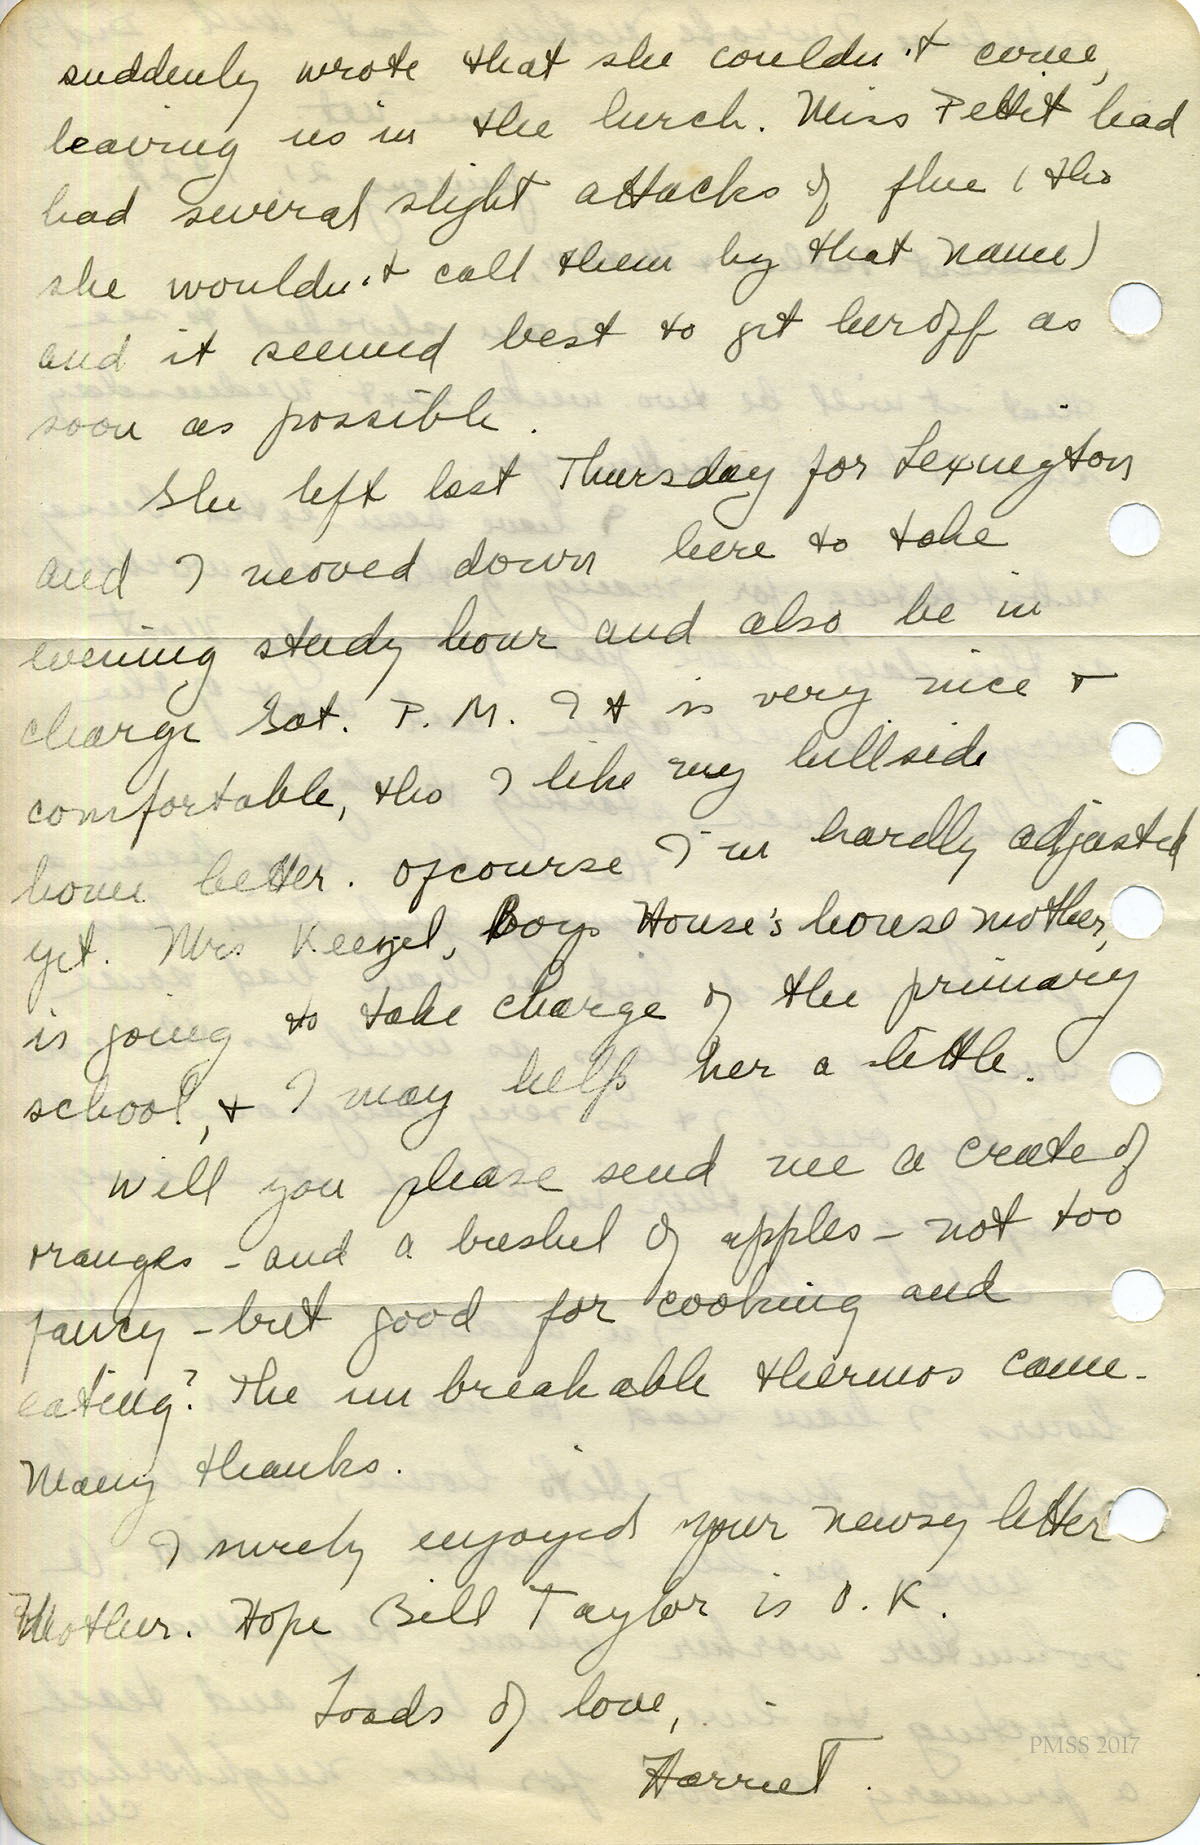 suddenly wrote that she couldn't come,
leaving us in the lurch. Miss Pettit had
had several slight attacks of flue (tho
she wouldn't call them by that name)
and it seemed best to get her off as
soon as possible.
She left last Thursday for Lexington
and I moved down here to take
evening study hour and also be in
charge Sat. P.M. It is very nice +
comfortable, tho I like my hillside
home better. Ofcourse I'm hardly adjusted
yet. Mrs Boys House's house mother,
is going to take charge of the primary
school, + I may help her a little.
Will you please send me a crate of
oranges - and a bushel of apples - not too
fancy - but good for cooking and
eating? The unbreakable thermos came.
Many thanks.
I surely enjoyed your newsy letter
Mother. Hope Bill Taylor is O.K.
Loads of love,
Harriet.
PMSS 2017